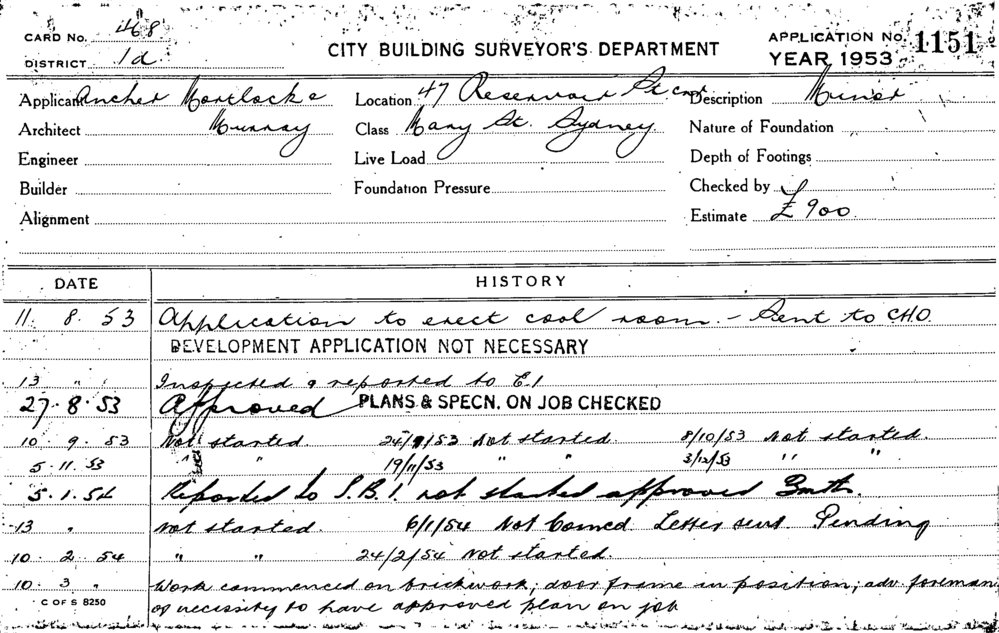 CARD No. 468
CITY BUILDING SURVEYOR'S DEPARTMENT
APPLICATION No. 1151
DISTRICT 1d
YEAR 1953
Applicant Ancher Mortlock &
Location 47 Reservoir St cnr
Description Minor
Architect Murray
Class Mary St. Sydney
Nature of Foundation
Engineer
Live Load
Depth of Footings
Builder
Foundation Pressure
Checked by
Alignment
Estimate £900
DATE HISTORY
11. 8. 53 Application to erect cool room. - Sent to C.H.O.
DEVELOPMENT APPLICATION NOT NECESSARY
13 " " Inspected & reported to E.1
27. 8. 53 Approved PLANS & SPECN. ON JOB CHECKED
10. 9. 53 Not started. 24/9/53 Not started. 8/10/53 Not started.
5. 11. 53 " " 19/11/53 " " 3/12/53 " "
5. 1. 54 Reported to S.B.I. not started approved
13 " Not started. 6/1/54 Letter sent. Pending
10. 2. 54 " " 24/2/54 Not started.
10. 3 " Work commenced on brickwork; door frame in position; adv. foreman
C OF S 8250
of necessity to have approved plan on job